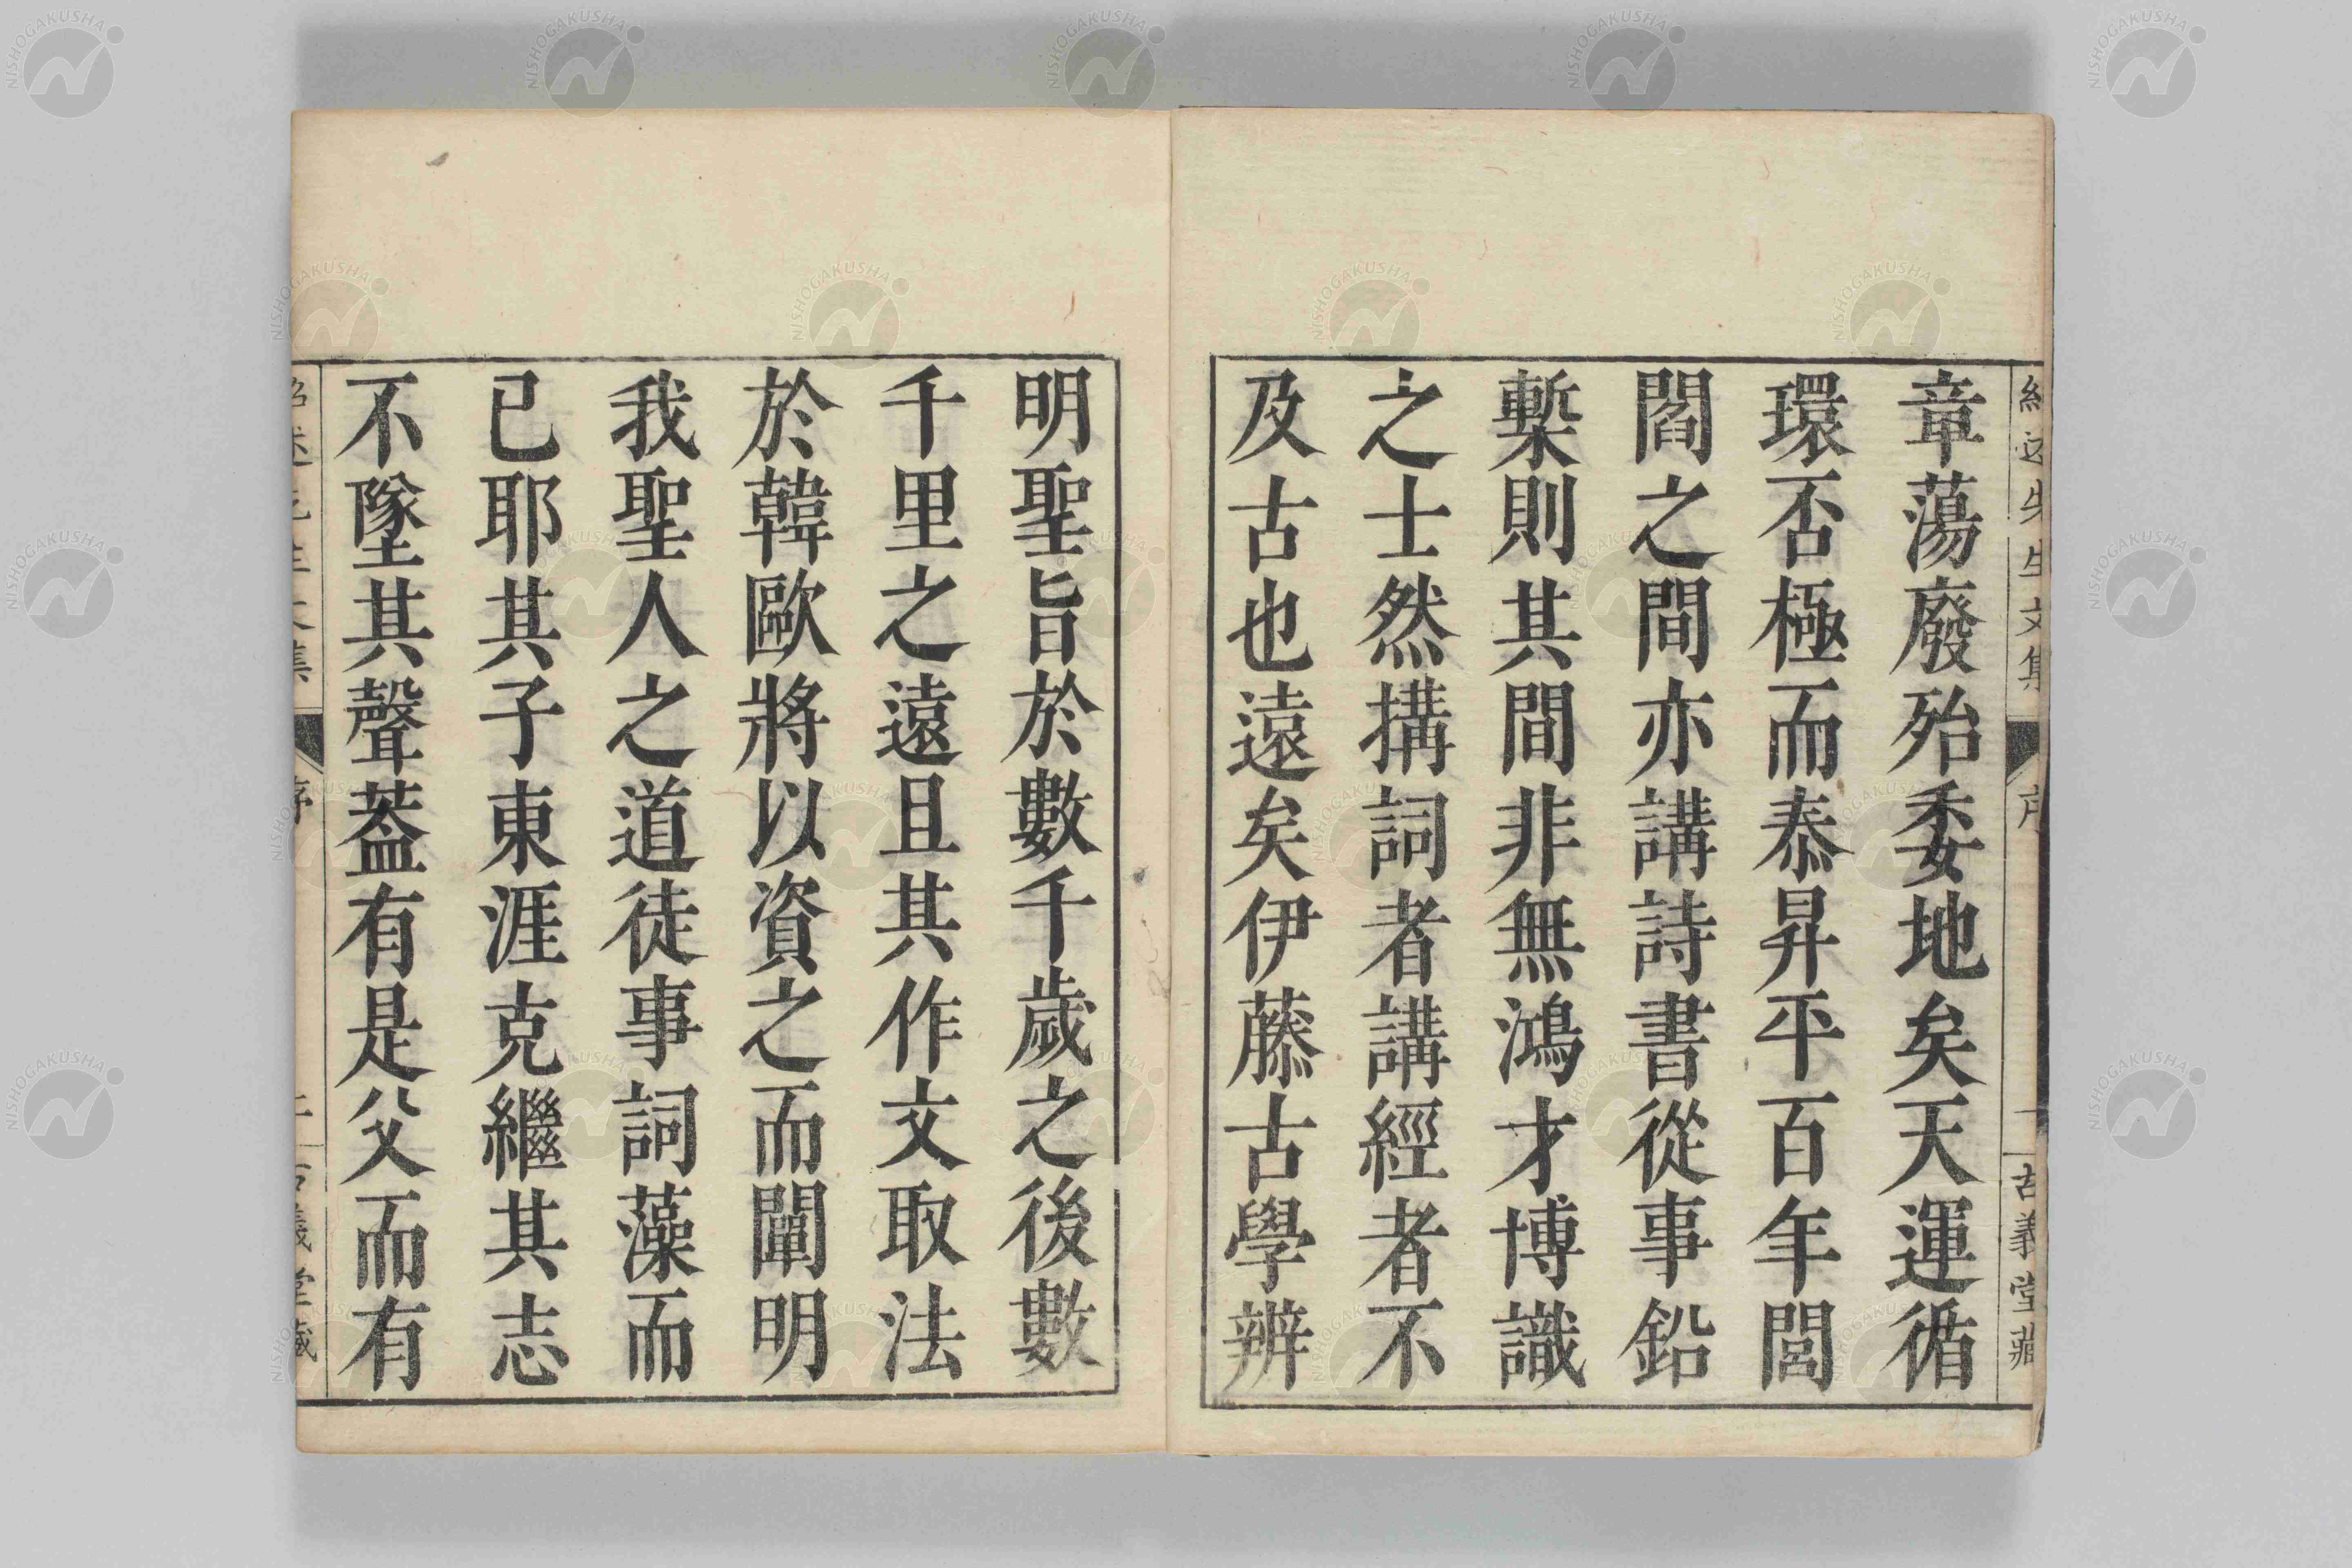 紹述先生文集
序
一
古義堂藏
章蕩廢殆委地矣天運循
環否極而泰昇平百年閭
閻之間亦講詩書從事鉛
槧則其間非無鴻才博識
之士然搆詞者講經者不
及古也遠矣伊藤古學辨
明聖旨於數千歲之後數
千里之遠且其作文取法
於韓歐將以資之而闡明
我聖人之道徒事詞藻而
已耶其子東涯克繼其志
不墜其聲葢有是父而有
紹述先生文集
序
古義堂藏
NISHOGAKUSHA